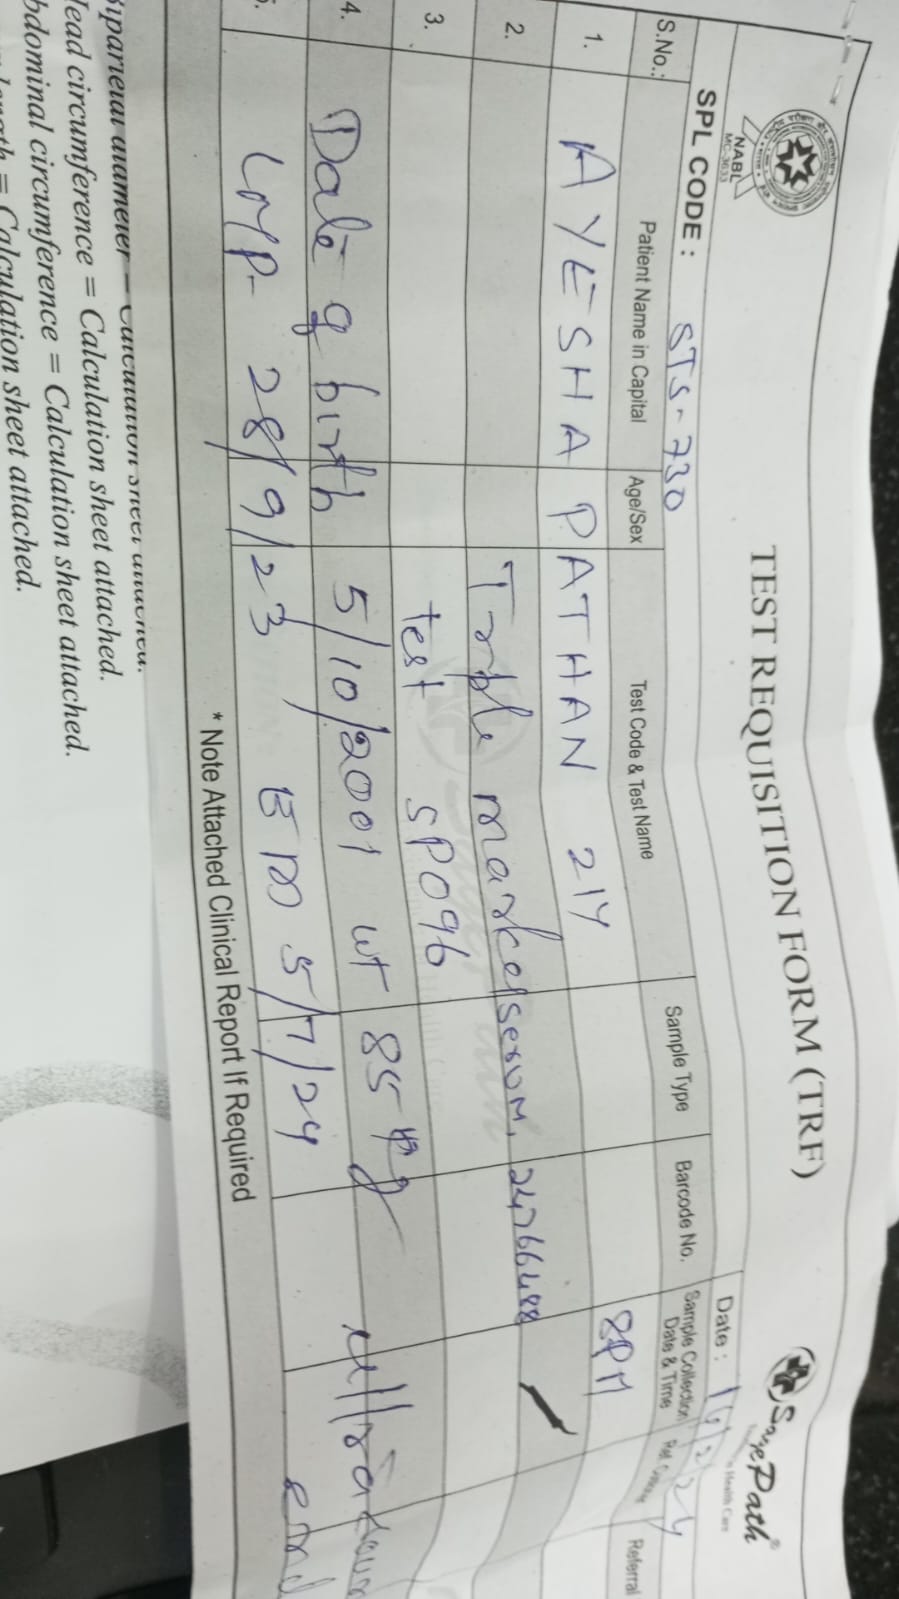 NABL
MC-3633
TEST REQUISITION FORM (TRF)
SagePath
SPL CODE : STS-730
Date : 14/2/24
S.No.: Patient Name in Capital Age/Sex Test Code & Test Name Sample Type Barcode No. Sample Collection Date & Time Referral
1. AYESHA PATHAN 21Y 8PM
2. Triple marker serum, 24766488
3. test SP096
4. Date of birth 5/10/2001 wt 85 kg ultrasound
5. LMP- 28/9/23 EDD 5/7/24
* Note Attached Clinical Report If Required
Biparietal diameter = Calculation sheet attached.
Head circumference = Calculation sheet attached.
bdominal circumference = Calculation sheet attached.
length = Calculation sheet attached.